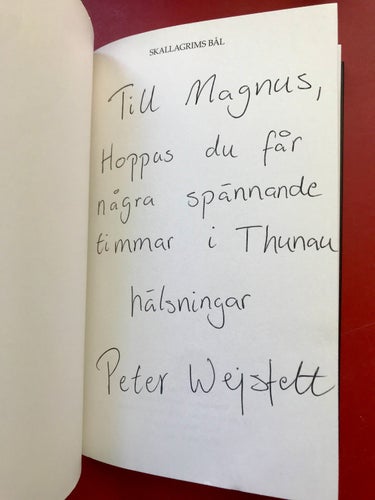 SKALLAGRIMS BÅL
Till Magnus,
Hoppas du får
några spännande
timmar i Thunau
hälsningar
Peter Wejstett